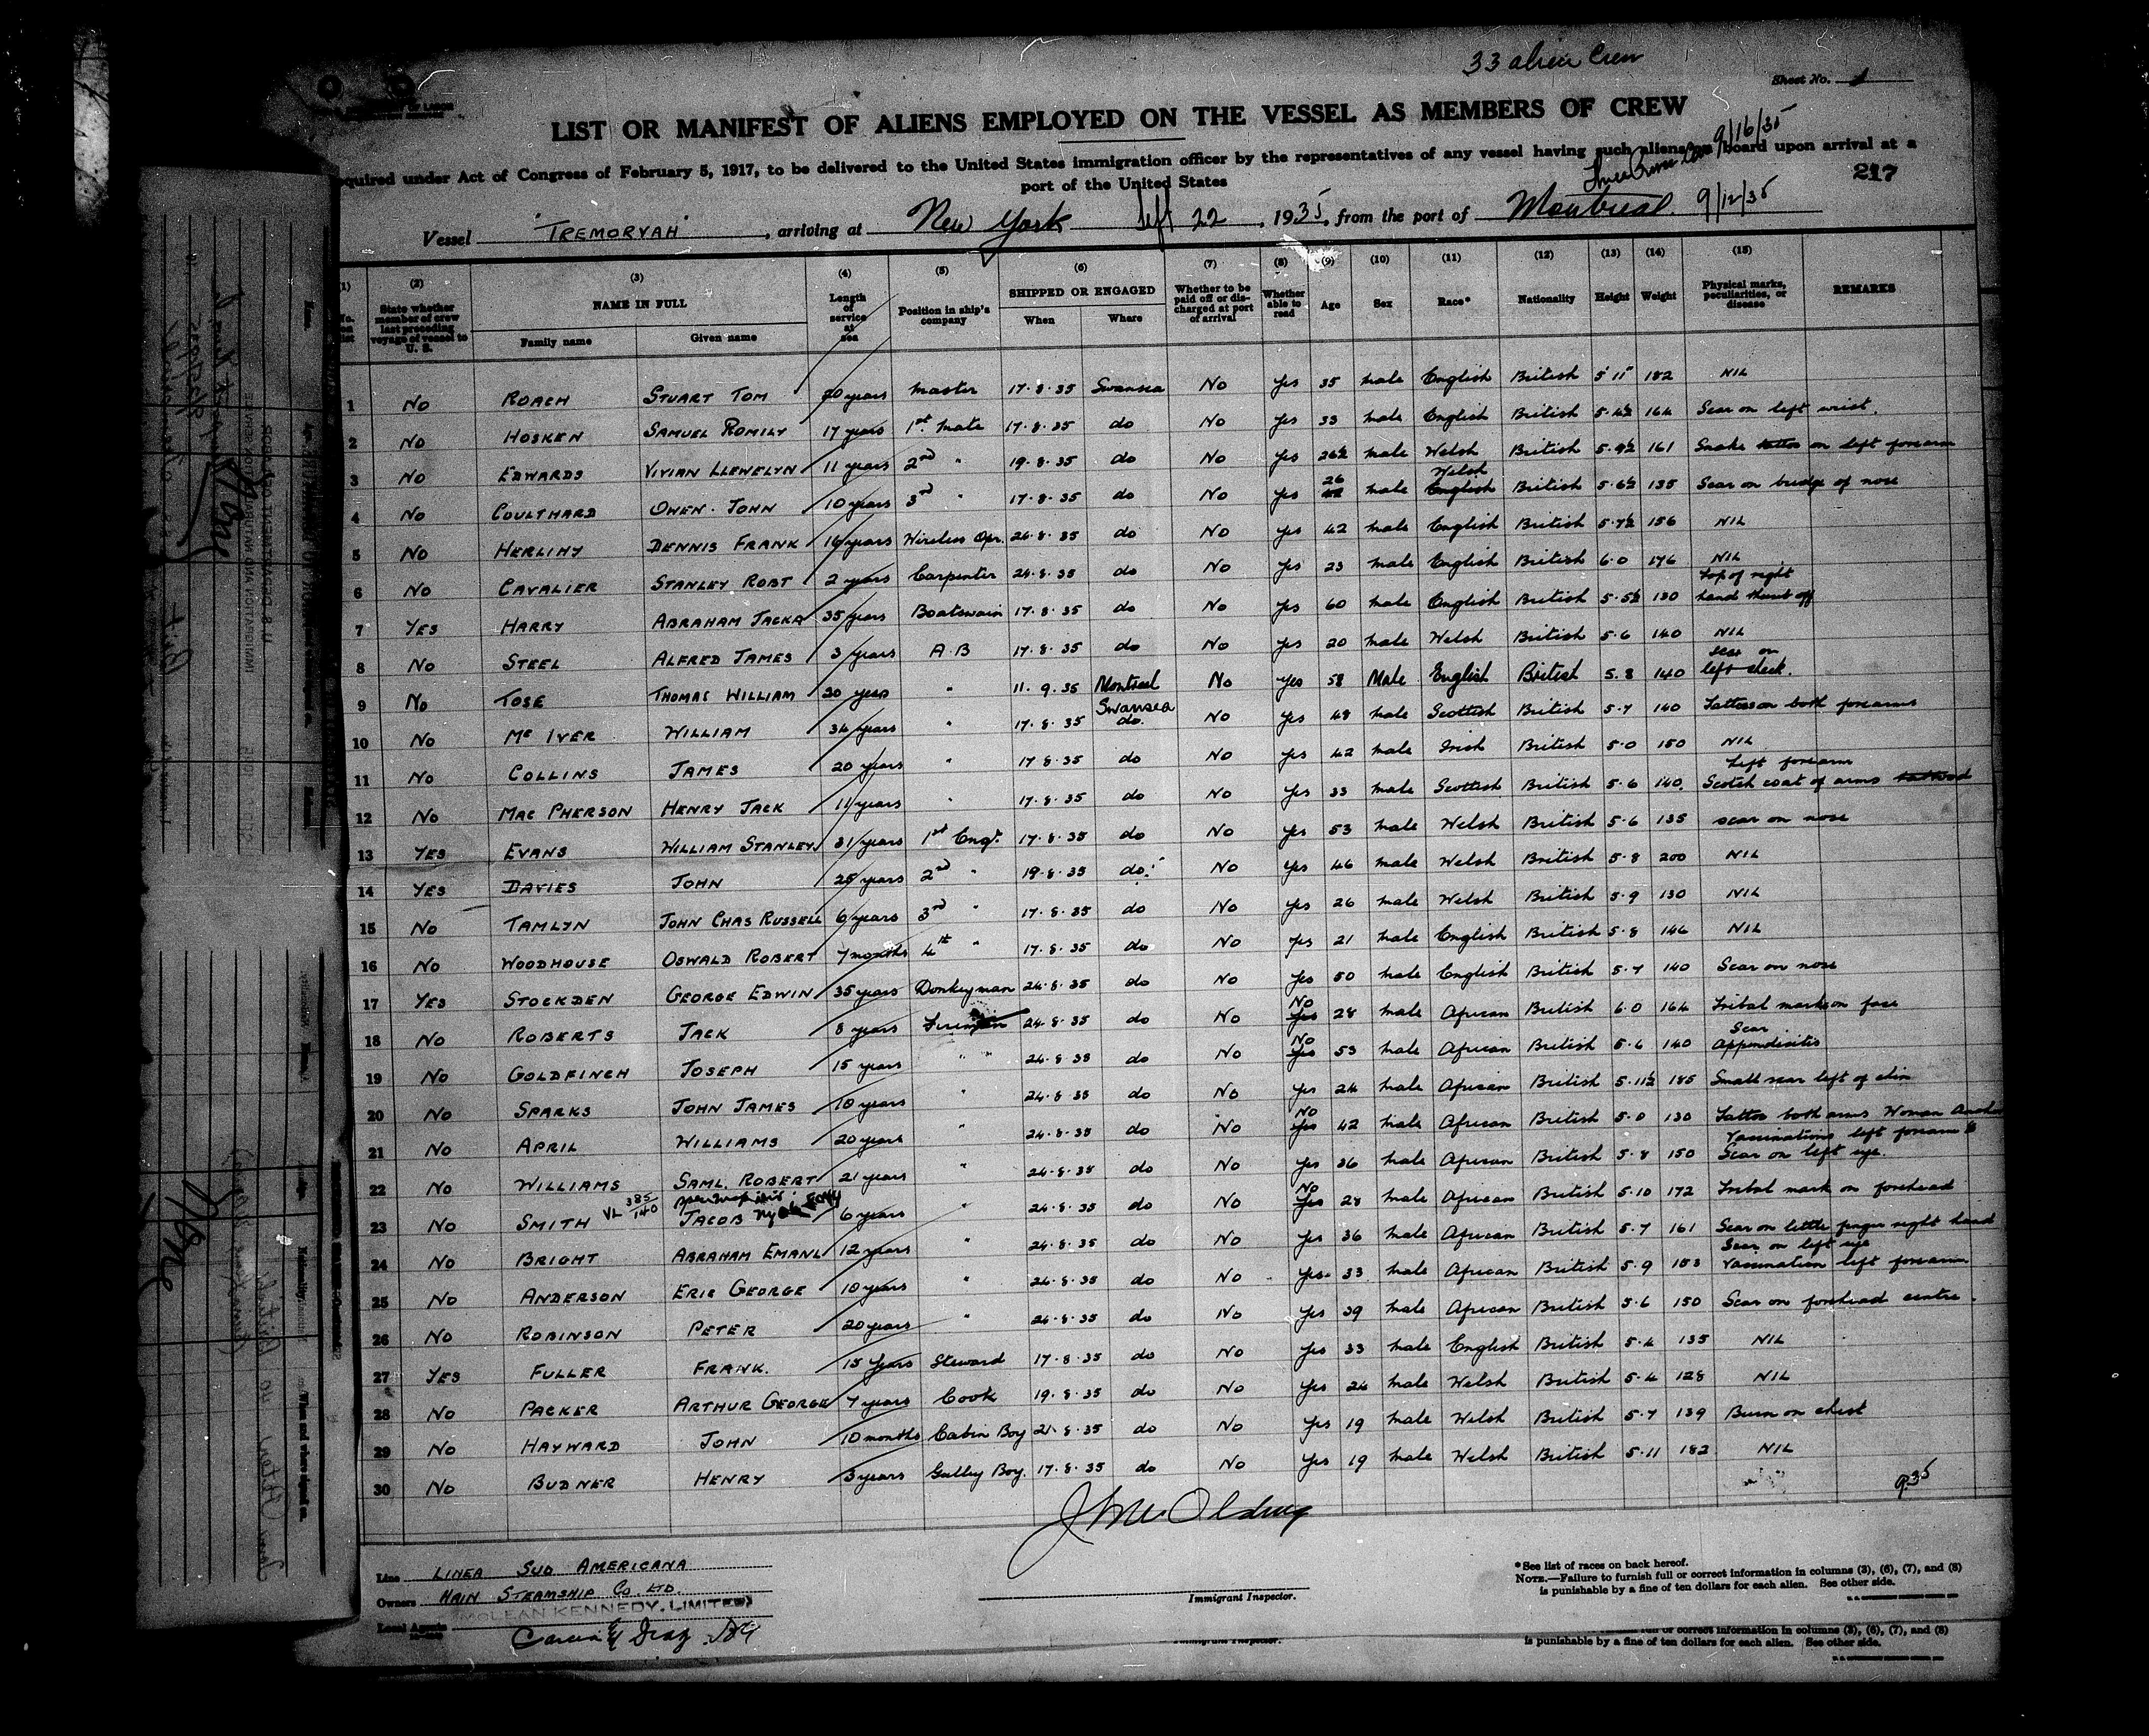 33 alien Crew
Sheet No. 1
LIST OR MANIFEST OF ALIENS EMPLOYED ON THE VESSEL AS MEMBERS OF CREW
9/16/35
quired under Act of Congress of February 5, 1917, to be delivered to the United States immigration officer by the representatives of any vessel having such aliens on board upon arrival at a
port of the United States
217
Vessel "TREMORVAH", arriving at New York Sept 22, 1935, from the port of Montreal 9/12/35
(1) (2) (3) (4) (5) (6) (7) (8) (9) (10) (11) (12) (13) (14) (15)
No. on list State whether member of crew last preceding voyage of vessel to U. S. NAME IN FULL Family name Given name Length of service at sea Position in ship's company SHIPPED OR ENGAGED When Where Whether to be paid off or discharged at port of arrival Whether able to read Age Sex Race* Nationality Height Weight Physical marks, peculiarities, or disease REMARKS
1 No ROACH STUART TOM 20 years Master 17.8.35 Swansea No Yes 35 male English British 5 11 182 NIL
2 No HOSKEN SAMUEL ROMILY 17 years 1st mate 17.8.35 do No Yes 33 male English British 5.4½ 164 Scar on left wrist.
3 No EDWARDS VIVIAN LLEWELYN 11 years 2nd " 19.8.35 do No Yes 26½ male Welsh British 5.9½ 161 Snake tattoo on left forearm
4 No COULTHARD OWEN JOHN 10 years 3rd " 17.8.35 do No Yes 26 male Welsh English British 5.6½ 135 Scar on bridge of nose
5 No HERLIHY DENNIS FRANK 16 years Wireless Opr. 24.8.35 do No Yes 42 male English British 5.7½ 156 NIL
6 No CAVALIER STANLEY ROBT 2 years Carpenter 24.8.35 do No Yes 23 male English British 6.0 176 NIL
7 YES HARRY ABRAHAM JACKA 35 years Boatswain 17.8.35 do No Yes 60 male English British 5.5½ 130 top of right hand thumb off
8 No STEEL ALFRED JAMES 3 years A.B 17.8.35 do No Yes 20 male Welsh British 5.6 140 NIL
9 No TOSE THOMAS WILLIAM 30 years " 11.9.35 Montreal No Yes 58 Male English British 5.8 140 scar on left cheek.
10 No Mc IVER WILLIAM 34 years " 17.8.35 Swansea do. No Yes 48 male Scottish British 5.7 140 Tattoos on both forearms
11 No COLLINS JAMES 20 years " 17.8.35 do No Yes 42 male Irish British 5.0 150 NIL
12 No MAC PHERSON HENRY JACK 11 years " 17.8.35 do No Yes 33 male Scottish British 5.6 140. Left forearm Scotch coat of arms tattooed
13 YES EVANS WILLIAM STANLEY 31 years 1st Engr. 17.8.35 do No Yes 53 male Welsh British 5.6 135 scar on nose
14 YES DAVIES JOHN 25 years 2nd " 19.8.35 do. No Yes 46 male Welsh British 5.8 200 NIL
15 No TAMLYN JOHN CHAS RUSSELL 6 years 3rd " 17.8.35 do No Yes 26 male Welsh British 5.9 130 NIL
16 No WOODHOUSE OSWALD ROBERT 7 months 4th " 17.8.35 do No Yes 21 male English British 5.8 146 NIL
17 YES STOCKDEN GEORGE EDWIN 35 years Donkeyman 24.8.35 do No Yes 50 male English British 5.7 140 Scar on nose
18 No ROBERTS JACK 8 years Fireman 24.8.35 do No No Yes 28 male African British 6.0 164 Tribal marks on face
19 No GOLDFINCH JOSEPH 15 years " " 24.8.35 do No No Yes 53 male African British 5.6 140 Scar appendicitis
20 No SPARKS JOHN JAMES 10 years " 24.8.35 do No Yes 24 male African British 5.11½ 185 Small scar left of chin
21 No APRIL WILLIAMS 20 years " 24.8.35 do No No Yes 42 male African British 5.0 130 Tattoo both arms Woman
22 No WILLIAMS SAML. ROBERT 21 years " 24.8.35 do No Yes 36 male African British 5.8 150 Vaccinations left forearm Scar on left eye.
23 No SMITH VL 385/140 JACOB 6 years " 24.8.35 do No No Yes 28 male African British 5.10 172 Tribal mark on forehead
24 No BRIGHT ABRAHAM EMANL 12 years " 24.8.35 do No Yes 36 male African British 5.7 161 Scar on little finger right hand
25 No ANDERSON ERIC GEORGE 10 years " 24.8.35 do No Yes 33 male African British 5.9 153 Scar on left eye Vaccination left forearm
26 No ROBINSON PETER 20 years " 24.8.35 do No Yes 39 male African British 5.6 150 Scar on forehead centre.
27 YES FULLER FRANK. 15 years Steward 17.8.35 do No Yes 33 male English British 5.4 135 NIL
28 No PACKER ARTHUR GEORGE 7 years Cook 19.8.35 do No Yes 24 male Welsh British 5.4 128 NIL
29 No HAYWARD JOHN 10 months Cabin Boy 21.8.35 do No Yes 19 male Welsh British 5.7 139 Burn on chest
30 No BUDNER HENRY 3 years Galley Boy. 17.8.35 do No Yes 19 male Welsh British 5.11 182 NIL
935
Line LINEA SUD AMERICANA
Owners HAIN STEAMSHIP CO. LTD.
McLEAN KENNEDY, LIMITED
Local Agents Garcia & Diaz
Immigrant Inspector.
*See list of races on back hereof.
NOTE.—Failure to furnish full or correct information in columns (3), (6), (7), and (8)
is punishable by a fine of ten dollars for each alien. See other side.
full or correct information in columns (3), (6), (7), and (8)
is punishable by a fine of ten dollars for each alien. See other side.
None
None